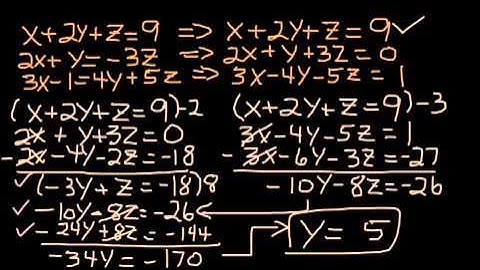 x+2y+z=9 => x+2y+z=9 ✓
2x+y=-3z => 2x+y+3z=0
3x-1=4y+5z => 3x-4y-5z=1
(x+2y+z=9)-2 (x+2y+z=9)-3
2x+y+3z=0 3x-4y-5z=1
-2x-4y-2z=-18 -3x-6y-3z=-27
✓(-3y+z=-18)8 -10y-8z=-26
✓-10y-8z=-26
✓-24y+8z=-144
-34y=-170 y=5